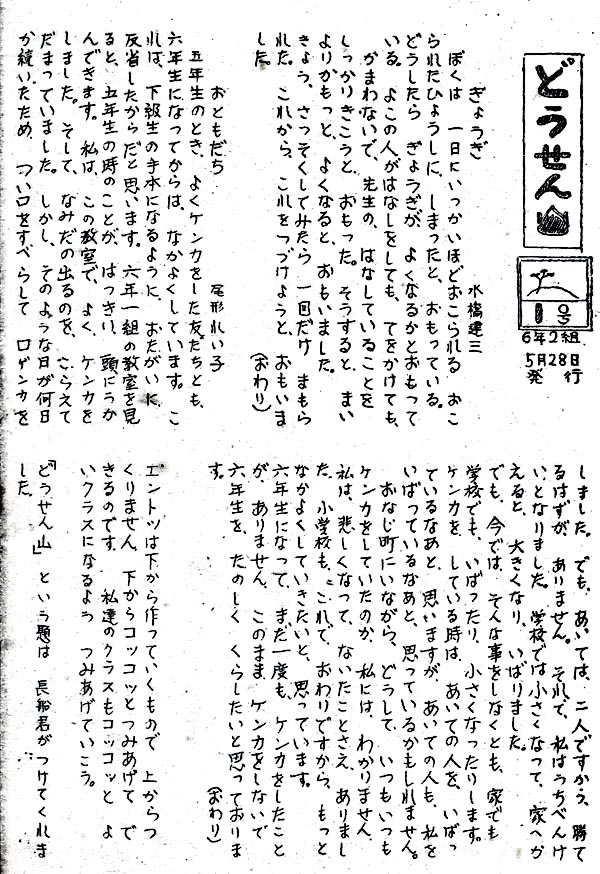 どうせん山
1号
6年2組
5月28日
発行
ぎょうぎ
水橋建三
ぼくは 一日にいっかいほどおこられる おこ
られたひょうしに、しまったと、おもっている。
どうしたら ぎょうぎが、よくなるかとおもって
いる。よこの人がはなしをしても、てをかけても、
かまわないで、先生の、はなしていることを
しっかりきこうと、おもった。そうすると、まい
よりかもっと、よくなると、おもいました。
きょう、さっそくしてみたら 一回だけ まもら
れた。これから、これをつづけようと、おもいま
した。
(おわり)
おともだち
尾形れい子
五年生のとき、よくケンカをした友だちとも、
六年生になってからは、なかよくしています。こ
れは、下級生の手本になるように、おたがいに
反省したからだと思います。六年一組の教室を見
ると、五年生の時のことが、はっきり、頭にうか
んできます。私は、この教室で、よく、ケンカを
しました。そして、なみだの出るのを、こらえて
だまっていました。しかし、そのような日が何日
か続いたため、つい口をすべらして 口ゲンカを
しました。でも、あいては、二人ですから、勝て
るはずが、ありません。それで、私はうちべんけ
いとなりました。学校では小さくなって、家へか
えると、大きくなり、いばりました。
でも、今では、そんな事をしなくとも、家でも
学校でも、いばったり、小さくなったりします。
ケンカを、している時は、あいての人を、いばっ
ているなあと、思いますが、あいての人も、私を
いばっているなあと、思っているかもしれません。
おなじ町にいながら、どうして、いつもいつも
ケンカをしていたのか、私には、わかりません。
私は、悲しくなって、ないたことさえ、ありまし
た。小学校も、これで、おわりですから、もっと
なかよくしていきたいと、思っています。
六年生になって、まだ一度も、ケンカをしたこと
が、ありません。このまま、ケンカをしないで
六年生を、たのしく くらしたいと思っておりま
す。
(おわり)
エントツは下から作っていくもので 上からつ
くりません。下からコッコッとつみあげて で
きるのです。私達のクラスもコッコッと よ
いクラスになるよう つみあげていこう。
「どうせん山」という題は 長船君がつけてくれま
した。